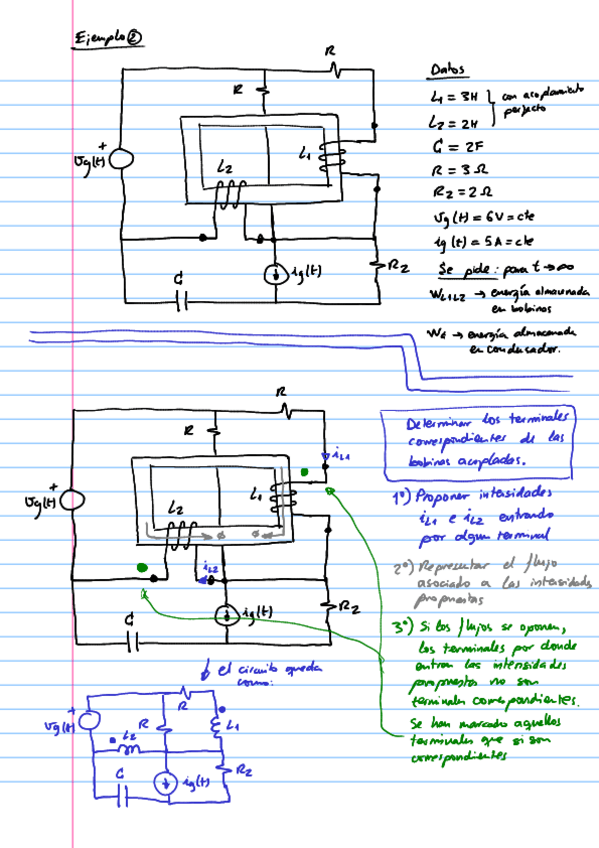 Ejemplo ②
R
R
L1
L2
+
Ug(t)
ig(t)
R2
C
Datos
L1 = 3H
L2 = 2H
con acoplamiento
perfecto
C = 2F
R = 3 Ω
R2 = 2 Ω
Ug(t) = 6V = cte
ig(t) = 5A = cte
Se pide: para t → ∞
WL1L2 → energía almacenada
en bobinas
Wc → energía almacenada
en condensador.
R
R
iL1
L1
L2
+
Ug(t)
ø
ø
iL2
ig(t)
R2
C
Determinar los terminales
correspondientes de las
bobinas acopladas.
1º) Proponer intensidades
iL1 e iL2 entrando
por algun terminal
2º) Representar el flujo
asociado a las intensidades
propuestas
3º) Si los flujos se oponen,
los terminales por donde
entran las intensidades
propuestas no son
terminales correspondientes.
Se han marcado aquellos
terminales que si son
correspondientes
↓ el circuito queda
como:
+
Ug(t)
R
R
L1
L2
C
ig(t)
R2